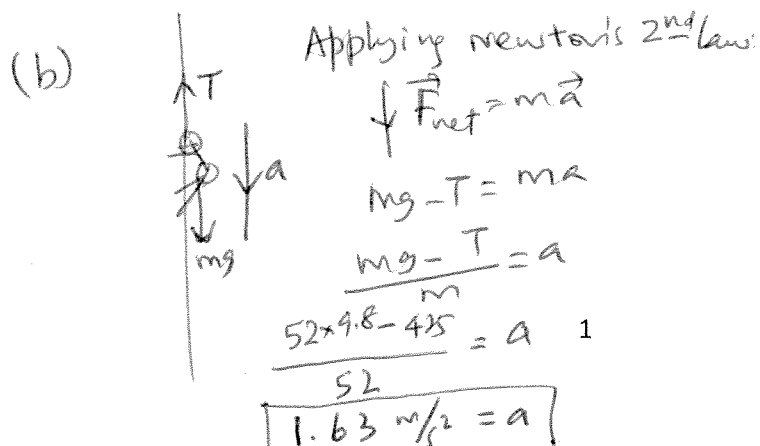 (b)
Applying newton's 2nd law:
T
a
mg
↓ F⃗net = ma⃗
mg - T = ma
mg - T / m = a
52×9.8 - 425 / 52 = a 1
1.63 m/s² = a